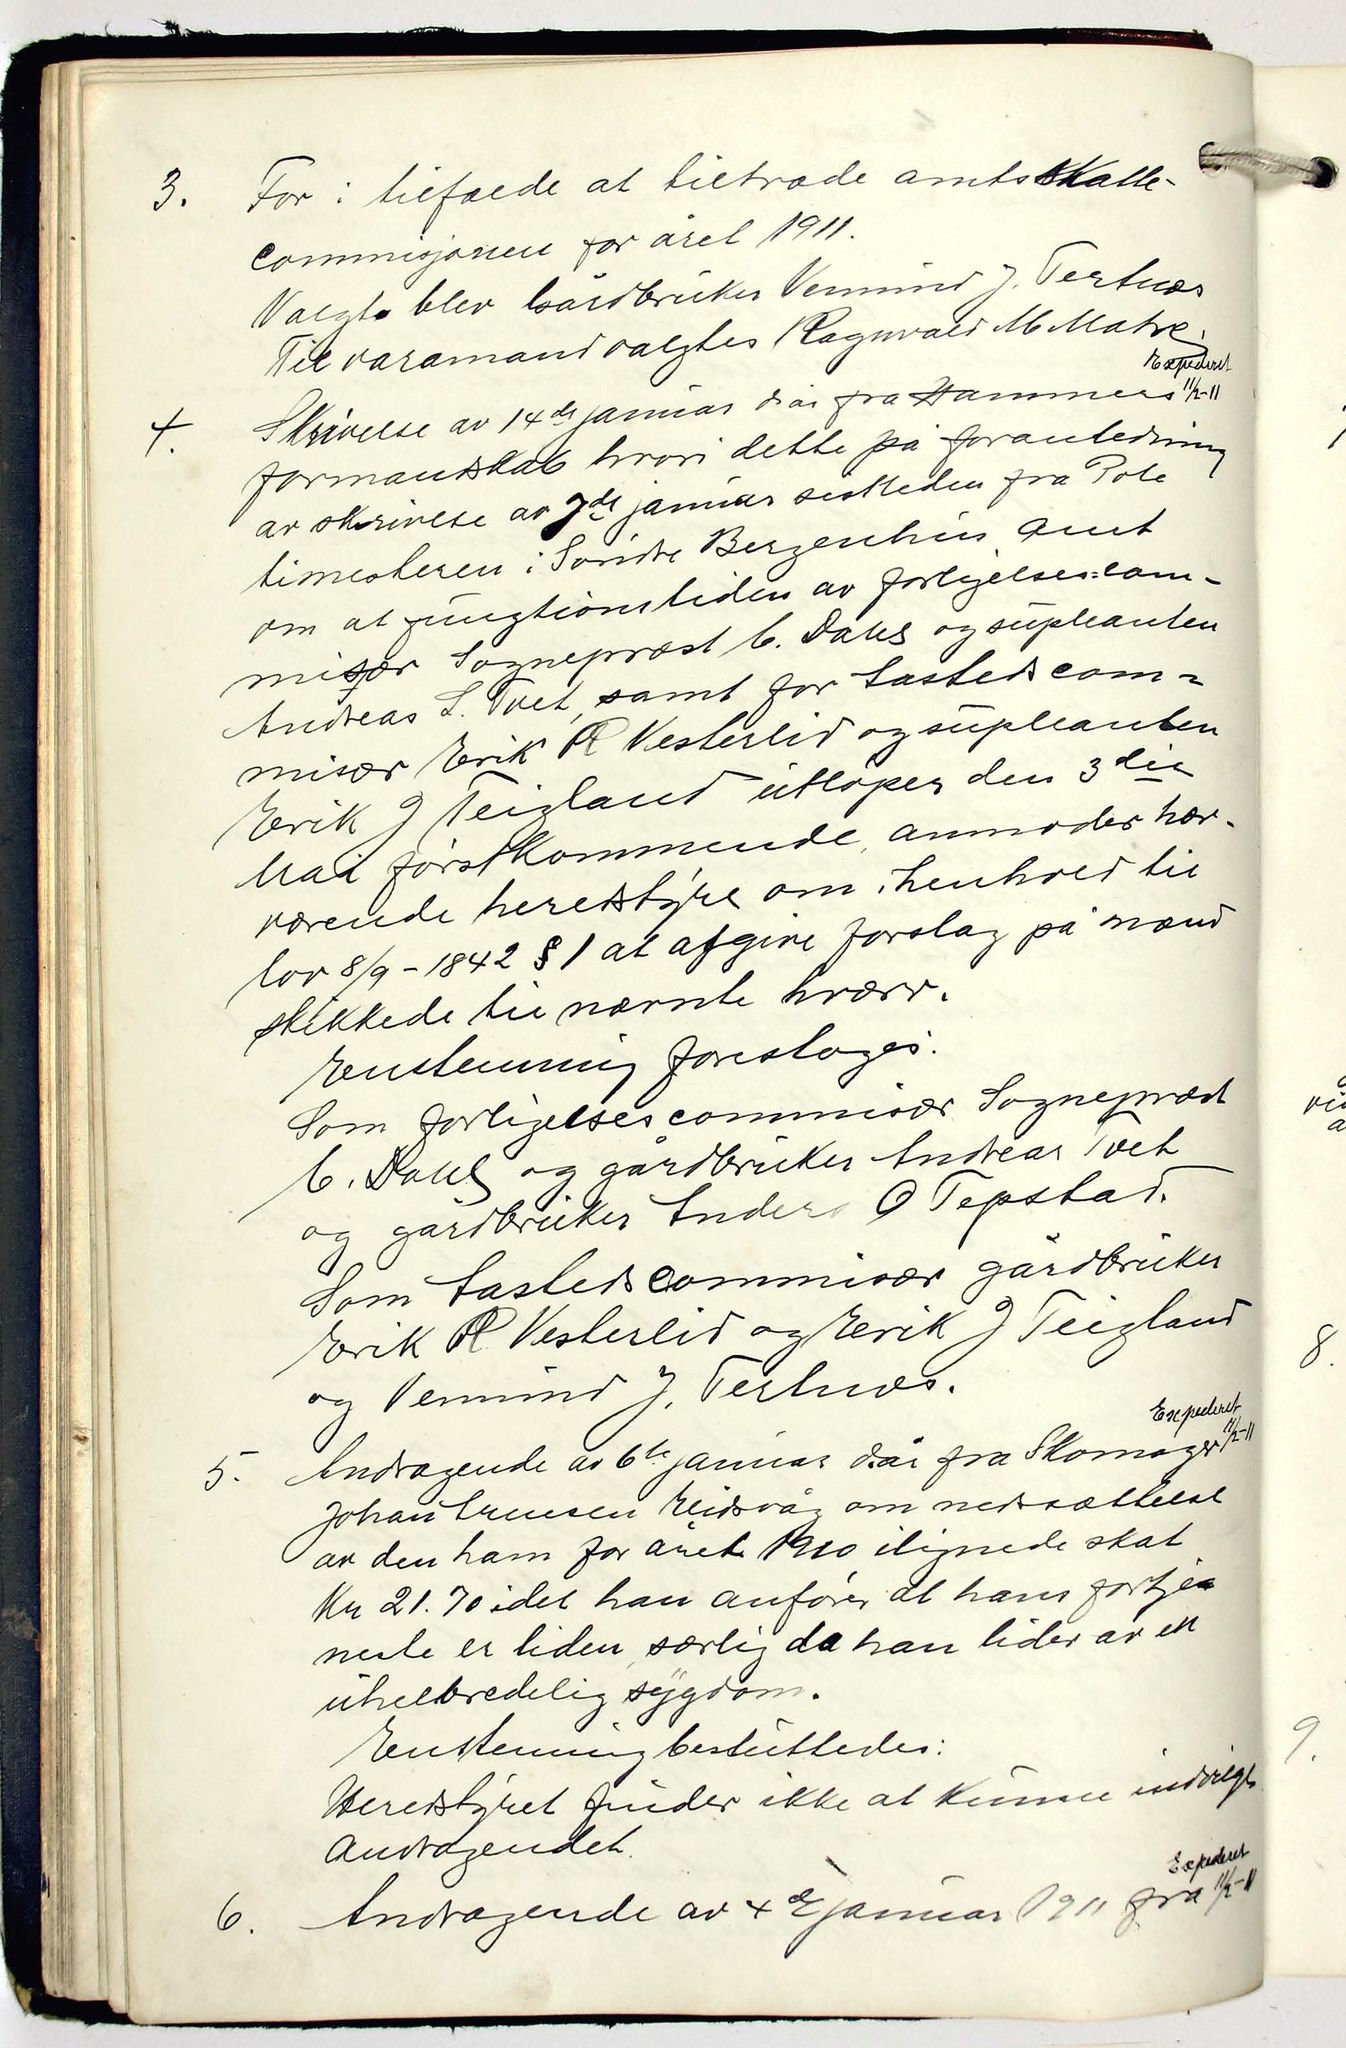 3. For i tilfælde at tiltræde amtsskatte-
commisjonen for året 1911.
Valgt blev Gårdbruker Vemund J. Tertnæs
Til varamand valgtes Ragnvald M Matre.
Expederet
11/2-11
4. Skrivelse av 14de januar d.år fra Hammers
formandskab hvori dette på foranledning
av skrivelse av 7de januar sistleden fra Pole
timesteren i Søndre Bergenhus amt
om at fungtionstiden av forligelses=com-
misær Sogneprest C. Dahl og supleanten
Andreas L. Tvet, samt for Tasteds com=
misær Erik R Vesterlid og supleanten
Erik J Teigland utløper den 3die
Mai førstkommende, anmoder hær-
værende heredstyre om i henhold til
lov 8/9-1842 § 1 at afgive forslag på mænd
skikkede til nævnte hværv.
Enstemmig foresloges:
Som forligelsescommisær Sogneprest
C. Dahl og gårdbruker Andreas Tvet
og gårdbruker Anders O Tepstad.
Som Tastedscommisær gårdbruker
Erik R Vesterlid og Erik J Teigland
og Vemund J. Tertnæs.
Expederet
11/2-11
5. Andragende av 6te januar d.år fra Skomager
Johan Eidsvåg om nedsættelse
av den ham for året 1910 ilignede skat
Kr 21.70 idet han anfører at hans fortje
neste er liden, særlig da han lider av en
uhelbredelig sygdom.
Enstemmig besluttedes:
Heredstyret finder ikke at kunne indvilge
andragendet.
Expederet
11/2-11
6. Andragende av 4de januar 1911 fra
8.
9.